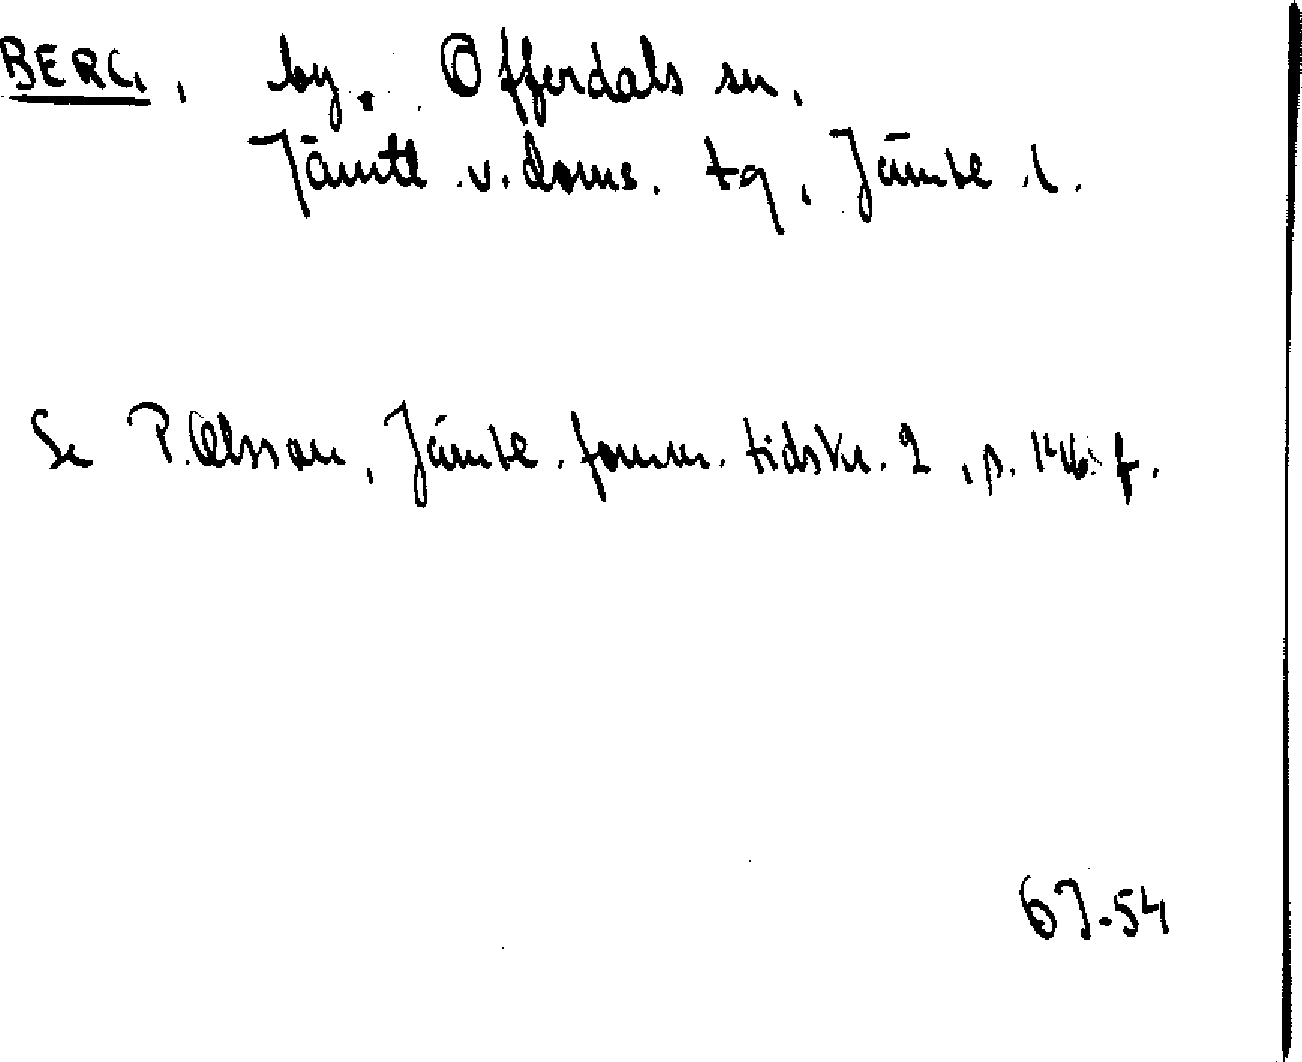 BERG, by. Offerdals sn,
Jämtl. v. doms. tg, Jämtl. l.
Se P. Olsson, Jämtl. fornm. tidskr. 2, s. 146 f.
67-54